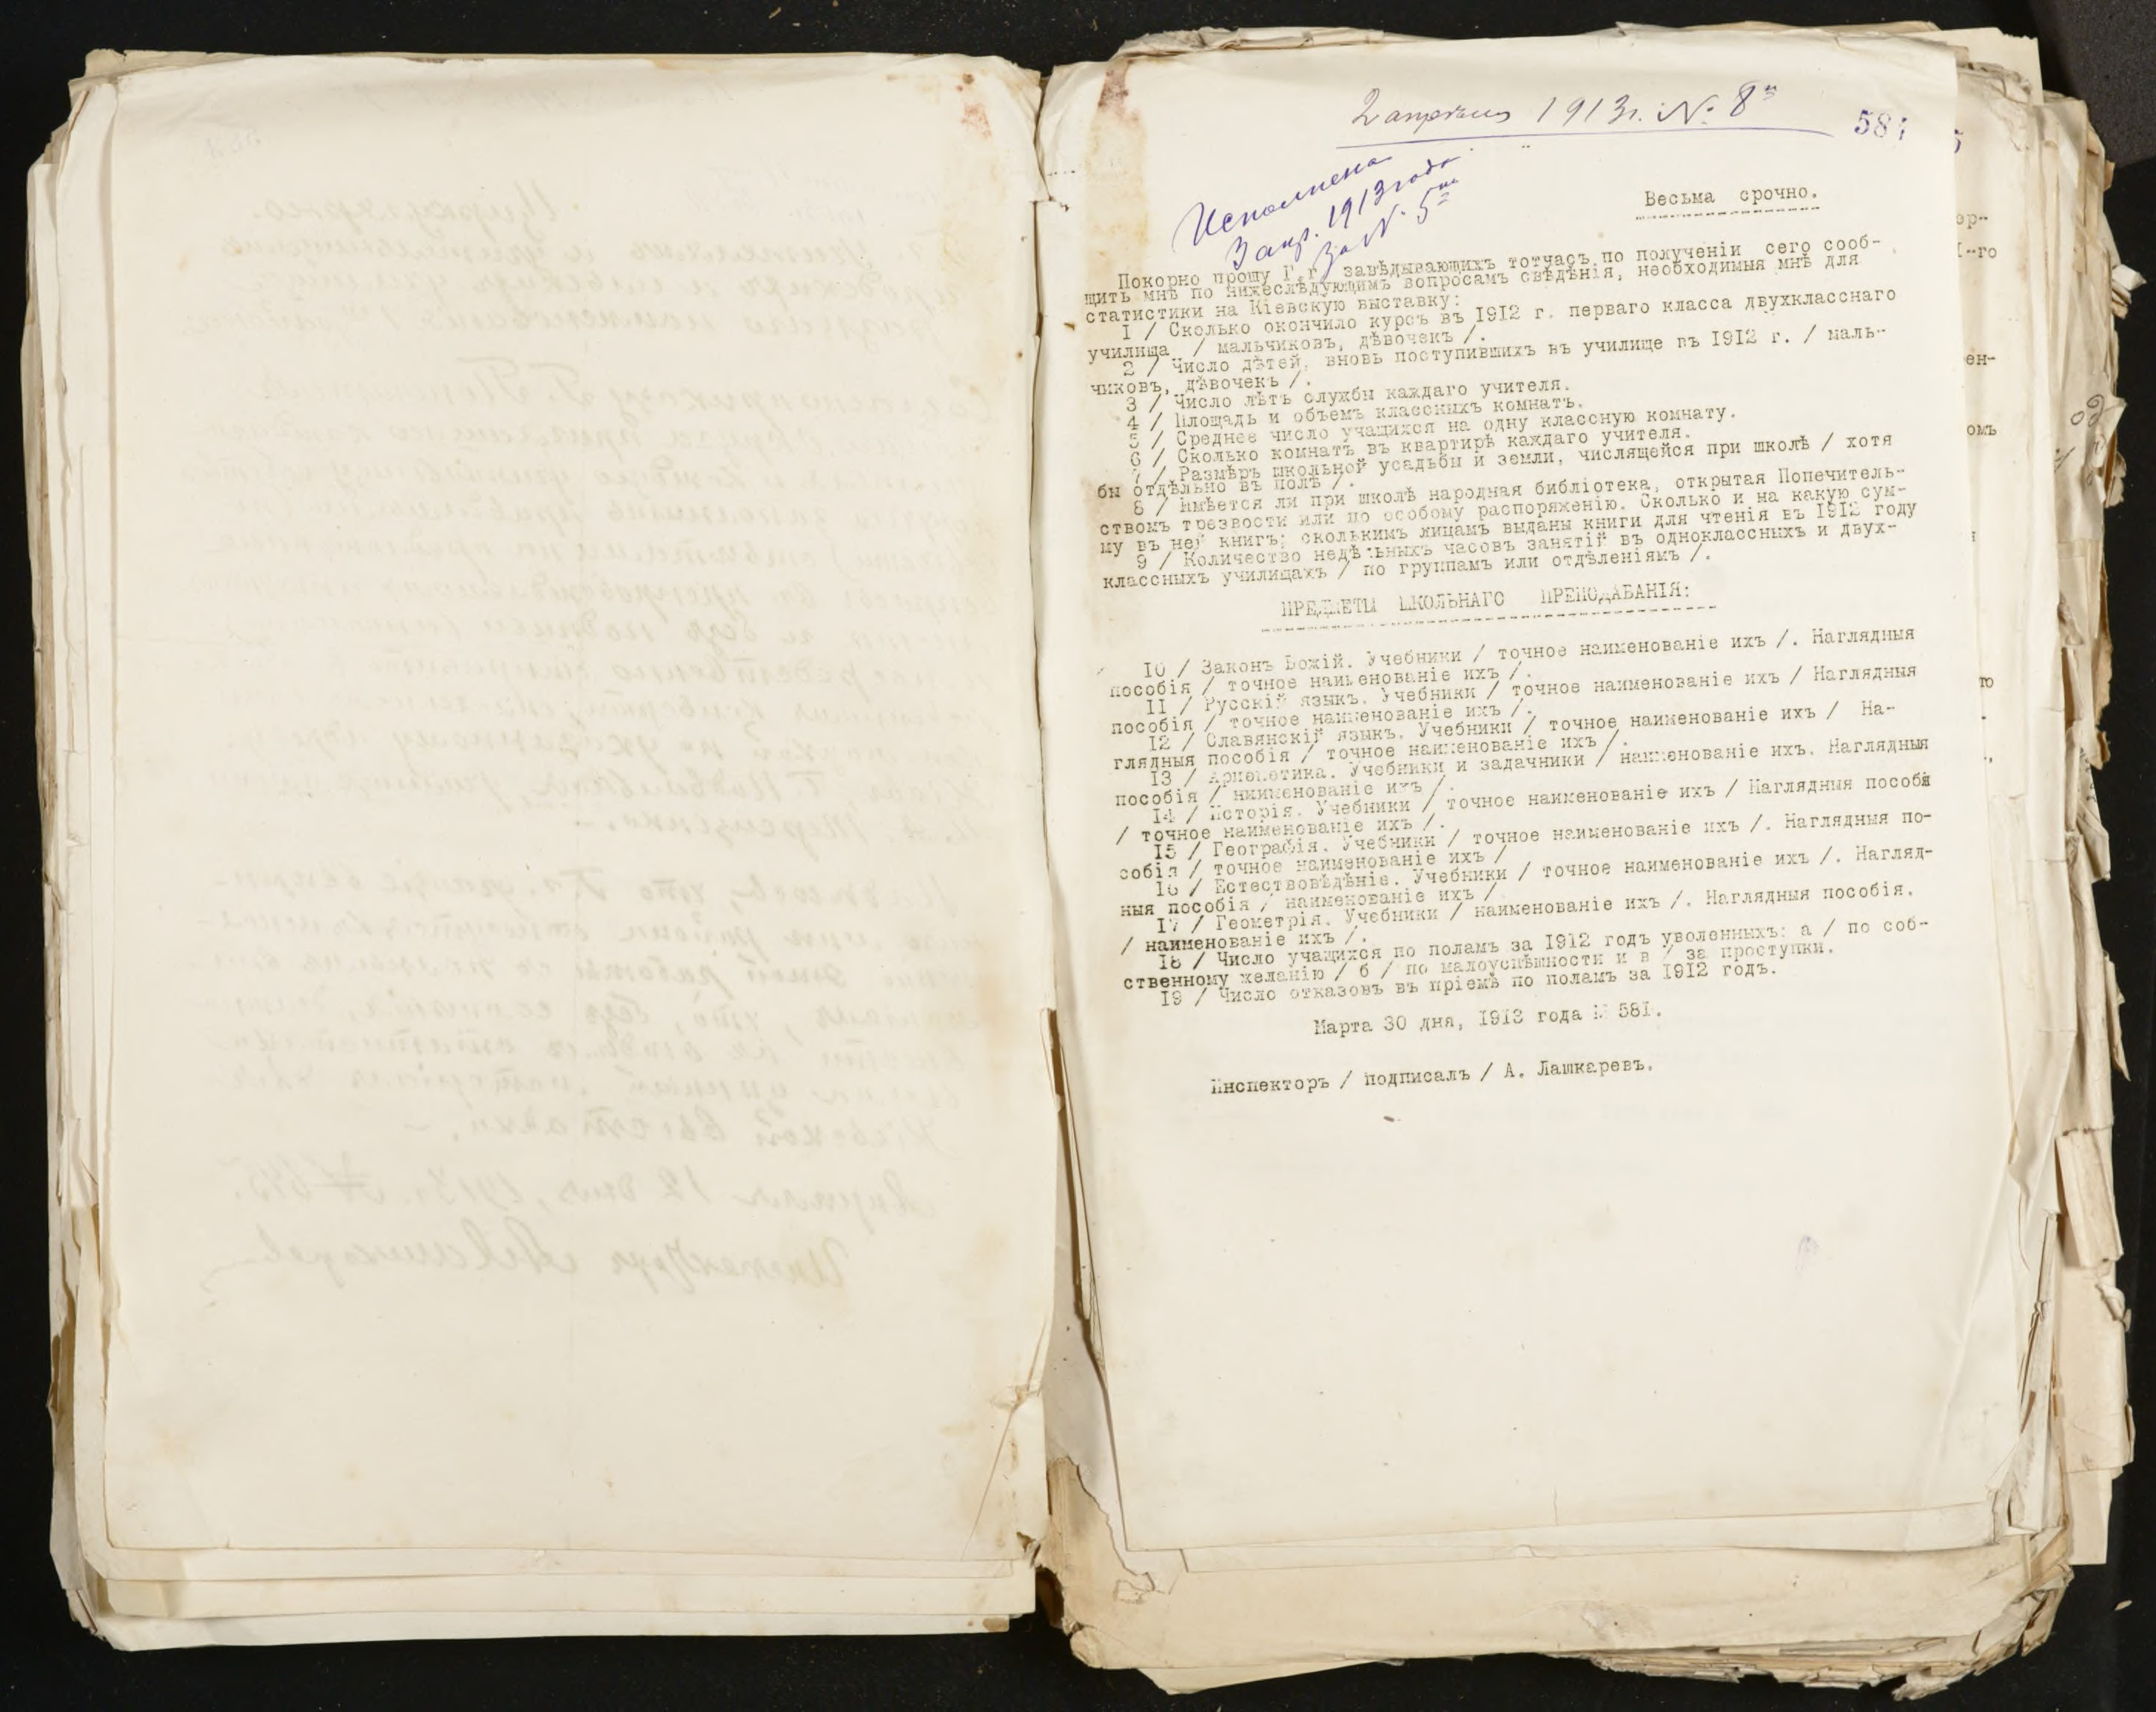 2 апрѣля 1913 г. № 8й
581
Исполнено
3 апр. 1913 года
за № 5м
Весьма срочно.
Покорно прошу Г.г. завѣдывающихъ тотчасъ по полученіи сего сооб-
щить мнѣ по нижеслѣдующимъ вопросамъ свѣдѣнія, необходимыя мнѣ для
статистики на Кіевскую выставку:
I / Сколько окончило курсъ въ I9I2 г. перваго класса двухкласснаго
училища / мальчиковъ, дѣвочекъ /.
2 / Число дѣтей, вновь поступившихъ въ училище въ I9I2 г. / маль-
чиковъ, дѣвочекъ /.
3 / Число лѣтъ службы каждаго учителя.
4 / Площадь и объемъ классныхъ комнатъ.
5 / Среднее число учащихся на одну классную комнату.
6 / Сколько комнатъ въ квартирѣ каждаго учителя.
7 / Размѣръ школьной усадьбы и земли, числящейся при школѣ / хотя
бы отдѣльно въ полѣ /.
8 / Имѣется ли при школѣ народная библіотека, открытая Попечитель-
ствомъ трезвости или по особому распоряженію. Сколько и на какую сум-
му въ ней книгъ; сколькимъ лицамъ выданы книги для чтенія въ I9I2 году
9 / Количество недѣльныхъ часовъ занятій въ одноклассныхъ и двух-
классныхъ училищахъ / по группамъ или отдѣленіямъ /.
ПРЕДМЕТЫ ШКОЛЬНАГО ПРЕПОДАВАНІЯ:
I0 / Законъ Божій. Учебники / точное наименованіе ихъ /. Наглядныя
пособія / точное наименованіе ихъ /.
II / Русскій языкъ. Учебники / точное наименованіе ихъ / Наглядныя
пособія / точное наименованіе ихъ /.
I2 / Славянскій языкъ. Учебники / точное наименованіе ихъ / На-
глядныя пособія / точное наименованіе ихъ /.
I3 / Арифметика. Учебники и задачники / наименованіе ихъ. Наглядныя
пособія / нииненованіе ихъ /.
I4 / Исторія. Учебники / точное наименованіе ихъ / Наглядныя пособія
/ точное наименованіе ихъ /.
I5 / Географія. Учебники / точное наименованіе ихъ /. Наглядныя по-
собія / точное наименованіе ихъ /
I6 / Естествовѣдѣніе. Учебники / точное наименованіе ихъ /. Нагляд-
ныя пособія / наименованіе ихъ /.
I7 / Геометрія. Учебники / наименованіе ихъ /. Наглядныя пособія.
/ наименованіе ихъ /.
I8 / Число учащихся по поламъ за I9I2 годъ уволенныхъ: а / по соб-
ственному желанію / б / по малоуспѣшности и в / за проступки.
I9 / Число отказовъ въ пріемѣ по поламъ за I9I2 годъ.
Марта 30 дня, I9I3 года № 58I.
Инспекторъ / подписалъ / А. Лашкаревъ.